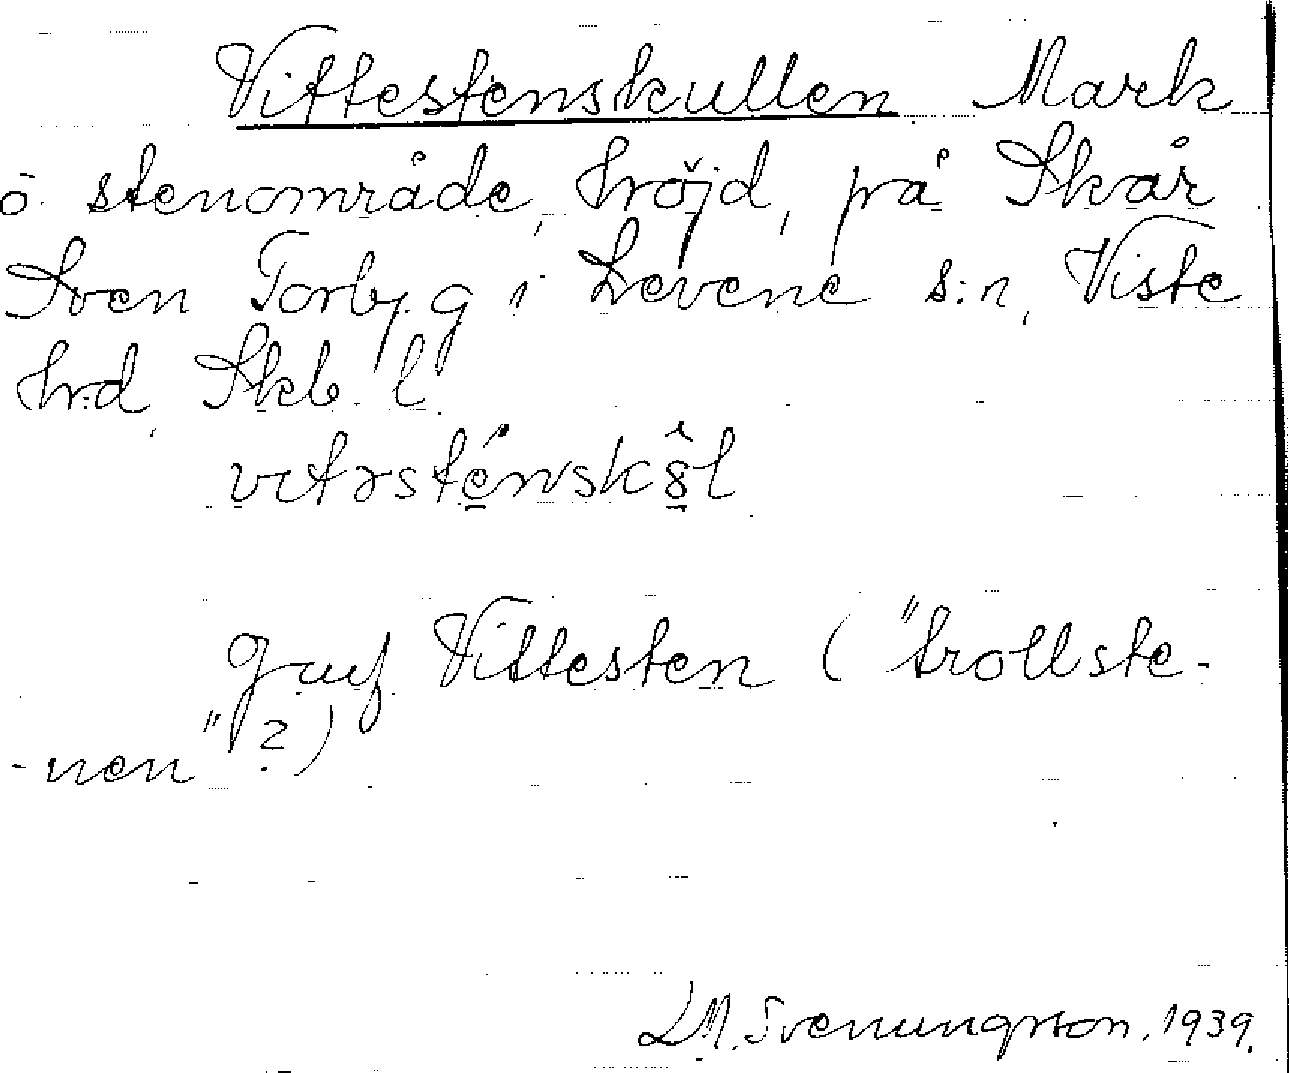 Vittestenskullen Mark
o. stenområde, höjd, på Skår
Sven Torby. g i Levene s:n, Viste
hrd, Skb. l.
Jmf. Vittesten ("trollste-
-nen"?)
LM. Svenungsson. 1939.